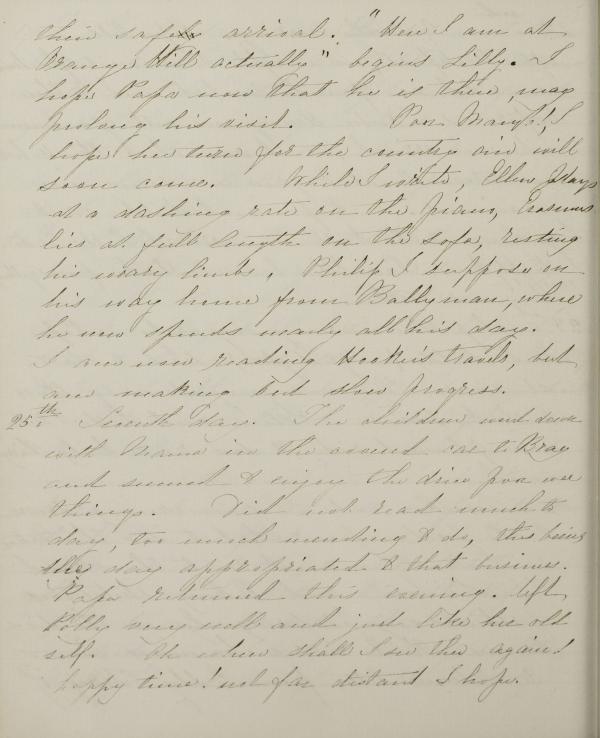 their safe arrival. "Here I am at
Orange Hill actually" begins Lilly. I
hope Papa now that he is there, may
prolong his visit. Poor Mary! I
hope her turn for the country air will
soon come. While I write, Ellen plays
at a dashing rate on the piano, Erasmus
lies at full length on the sofa, resting
his weary limbs, Philip I suppose on
his way home from Ballyman, where
he now spends nearly all his days.
I am now reading Hooker's travels, but
am making but slow progress.
25th Seventh Day. The children went down
with Mama in the covered car to Bray
and seemed to enjoy the drive poor wee
things. Did not read much to
day, too much mending to do, this being
the day appropriated to that business.
Papa returned this evening. left
Polly very well and just like her old
self. Oh when shall I see thee again!
happy time! not far distant I hope.